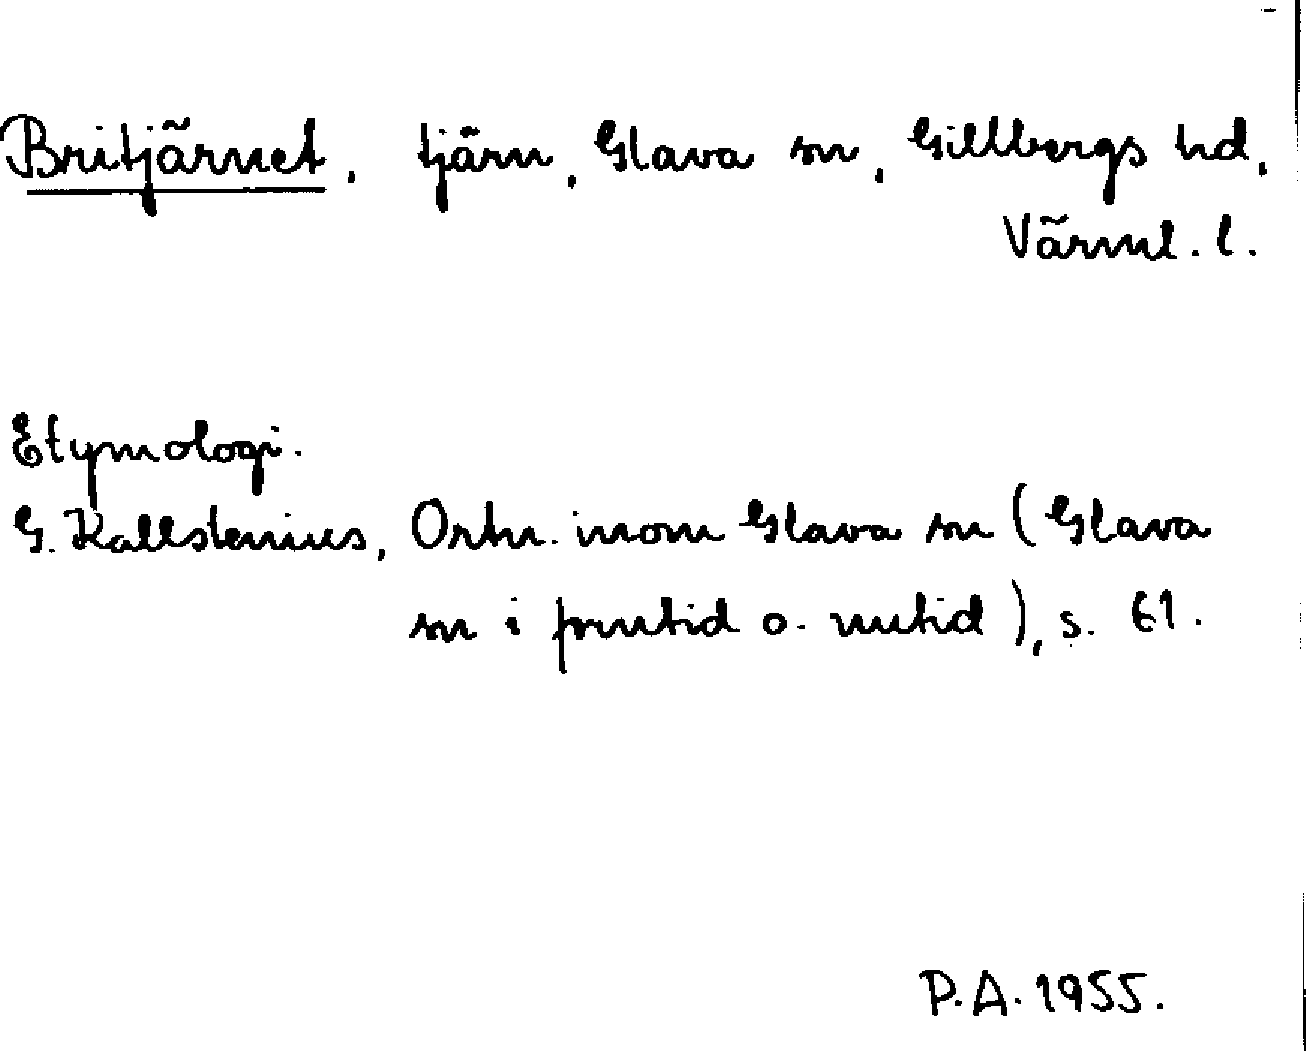 Britjärnet, tjärn, Glava sn, Gillbergs hd,
Värml. l.
Etymologi.
G. Kallstenius, Ortn. inom Glava sn (Glava
sn i forntid o. nutid), s. 61.
P.A. 1955.